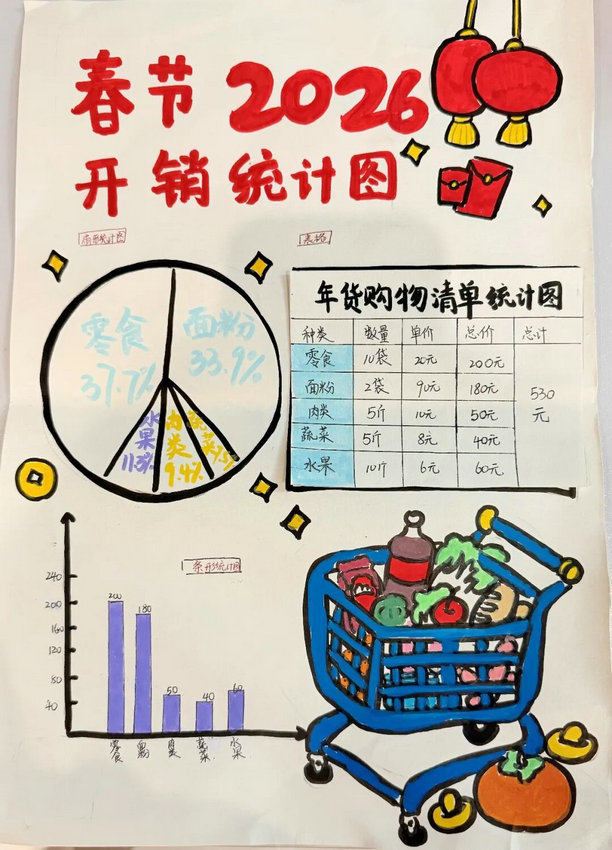 春节 2026
开销统计图
扇形统计图
表格
零食
37.7%
面粉
33.9%
水果
11.3%
肉类
9.4%
蔬菜
7.5%
年货购物清单统计图
种类 数量 单价 总价 总计
零食 10袋 20元 200元
面粉 2袋 90元 180元
肉类 5斤 10元 50元
蔬菜 5斤 8元 40元
水果 10斤 6元 60元
530元
条形统计图
240
200
160
120
80
40
200 180 50 40 60
零食 面粉 肉类 蔬菜 水果